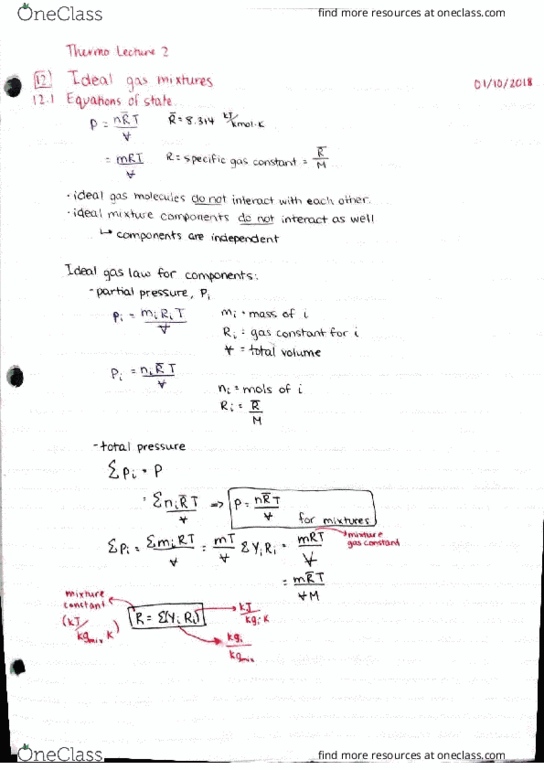 OneClass
find more resources at oneclass.com
Thermo Lecture 2
12 Ideal gas mixtures
01/10/2018
12.1 Equations of state
P = nR̄T/V R̄ = 8.314 kJ/kmol·K
= mRT/V R = specific gas constant = R̄/M
· ideal gas molecules do not interact with each other.
· ideal mixture components do not interact as well
↳ components are independent
Ideal gas law for components:
- partial pressure, Pi
Pi = miRiT/V mi = mass of i
Ri = gas constant for i
V = total volume
Pi = niR̄T/V
ni = mols of i
Ri = R̄/M
- total pressure
ΣPi = P
= ΣniR̄T/V => P = nR̄T/V
for mixtures
ΣPi = ΣmiRT/V = mT/V ΣYiRi = mRT/V → mixture gas constant
= mR̄T/VM
mixture constant
(kJ/kgmix K)
R = Σ(YiRi)
kJ/kgi·K
kgi/kgmix
OneClass
find more resources at oneclass.com